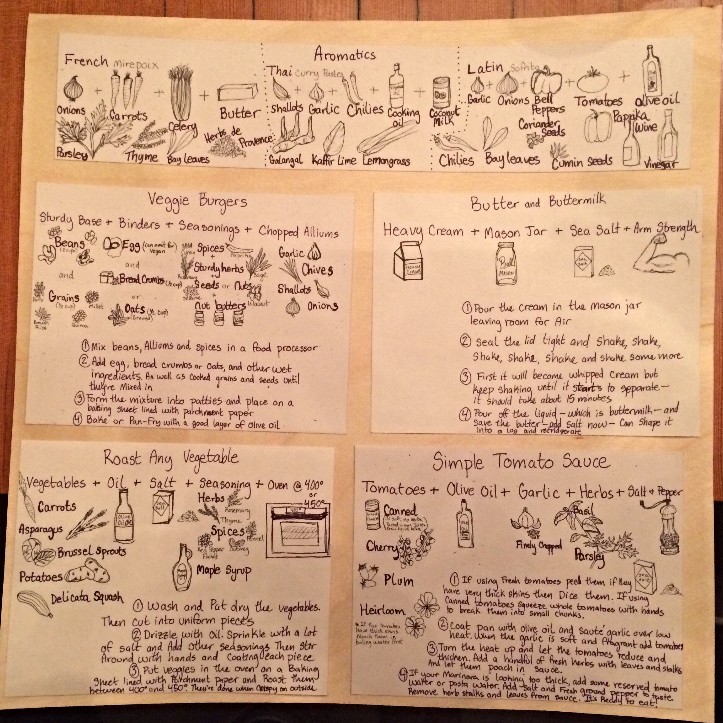 Aromatics
French mirepoix
Onions
Carrots
Celery
Butter
Parsley
Thyme
Bay leaves
Herbs de
Provence
Thai Curry Paste
Shallots
Garlic
Chilies
Cooking
oil
Coconut
Milk
Galangal
Kaffir Lime
Lemongrass
Latin Sofrito
Garlic
Onions
Bell
Peppers
Tomatoes
Olive oil
Chilies
Bay leaves
Coriander
Seeds
Cumin Seeds
Paprika
Wine
Vinegar
Veggie Burgers
Sturdy Base + Binders + Seasonings + Chopped Alliums
Beans
and
Grains
Egg (can omit for
vegan
and
Bread Crumbs
or
Oats
Spices
Sturdy herbs
Seeds or Nuts
Nut butters
Garlic
Chives
Shallots
Onions
① Mix beans, Alliums and spices in a food processor
② Add egg, bread crumbs or oats, and other wet
ingredients. As well as cooked grains and seeds until
they're mixed in
③ Form the mixture into patties and place on a
baking sheet lined with parchment paper
④ Bake or Pan-Fry with a good layer of olive oil
Butter and Buttermilk
Heavy Cream + Mason Jar + Sea Salt + Arm Strength
Ball
Mason
① Pour the cream in the mason jar
leaving room for Air
② Seal the lid tight and shake, shake,
shake, shake, shake and shake some more
③ First it will become whipped cream but
keep shaking until it starts to separate—
it should take about 15 minutes
④ Pour off the liquid—which is buttermilk—and
save the butter—add salt now— Can shape it
into a log and refrigerate
Roast Any Vegetable
Vegetables + Oil + Salt + Seasoning + Oven @ 400°
or
450°
Carrots
Asparagus
Brussel Sprouts
Potatoes
Delicata Squash
Herbs
Rosemary
Thyme
Spices
Maple Syrup
① Wash and Pat dry the vegetables.
Then cut into uniform pieces
② Drizzle with oil. Sprinkle with a lot
of salt and Add other seasonings Then stir
Around with hands and Coating each piece
③ Put veggies in the oven on a Baking
sheet lined with Parchment paper and Roast them
between 400° and 450°. They're done when crispy on outside
Simple Tomato Sauce
Tomatoes + Olive Oil + Garlic + Herbs + Salt + Pepper
Canned
Cherry
Plum
Heirloom
Finely Chopped
Basil
Parsley
① If using Fresh tomatoes peel them if they
have very thick skins then Dice them. If using
Canned tomatoes squeeze whole tomatoes with hands
to break them into small chunks.
② Coat pan with olive oil and sauté garlic over low
heat. When the garlic is soft and fragrant add tomatoes
③ Turn the heat up and let the tomatoes reduce and
thicken. Add a handful of fresh herbs with leaves and stalks
And let them poach in sauce.
④ If your Marinara is looking too thick, add some reserved tomato
water or pasta water. Add Salt and Fresh ground pepper to taste.
Remove herb stalks and leaves from sauce. It's Ready to eat!